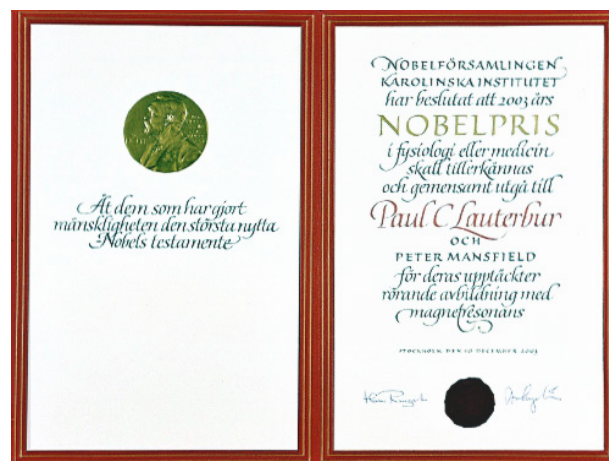 Åt dem som har gjort
mänskligheten den största nytta
Nobels testamente
NOBELFÖRSAMLINGEN
KAROLINSKA INSTITUTET
har beslutat att 2003 års
NOBELPRIS
i fysiologi eller medicin
skall tillerkännas
och gemensamt utgå till
Paul C Lauterbur
OCH
PETER MANSFIELD
för deras upptäckter
rörande avbildning med
magnetresonans
STOCKHOLM DEN 10 DECEMBER 2003